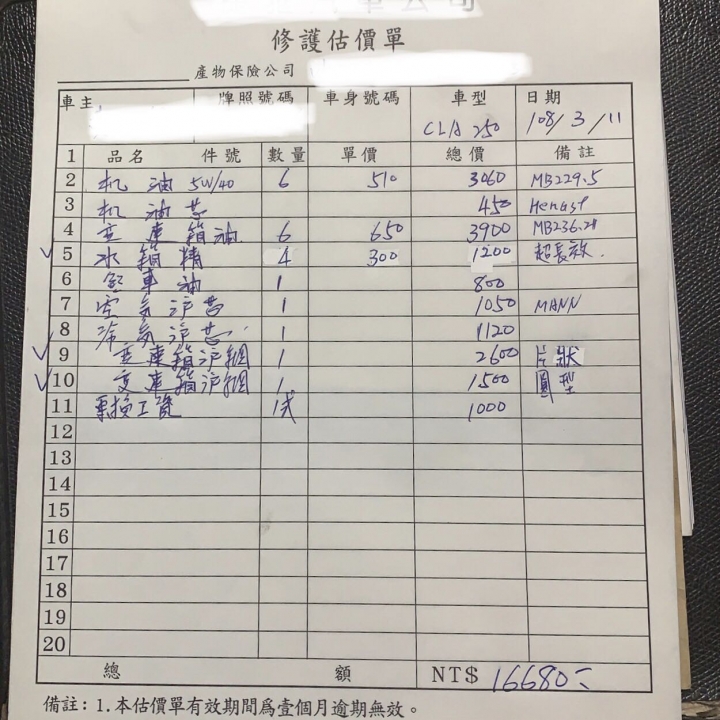 修護估價單
產物保險公司
車主, 牌照號碼 車身號碼 車型 CLA 250 日期 108/3/11
1 品名 件號 數量 單價 總價 備註
2 机油 5W/40 6 510 3060 MB229.5
3 机油芯 450 Hengst
4 变速箱油 6 650 3900 MB236.21
5 水箱精 4 300 1200 超長效.
6 煞車油 1 800
7 空氣沪芯 1 1050 MANN
8 冷氣沪芯 1 1120
9 变速箱沪網 1 2600 片狀
10 变速箱沪網 1 1500 圓型
11 更換工資 1式 1000
12
13
14
15
16
17
18
19
20
總額 NT$ 16680
備註：1.本估價單有效期間為壹個月逾期無效。